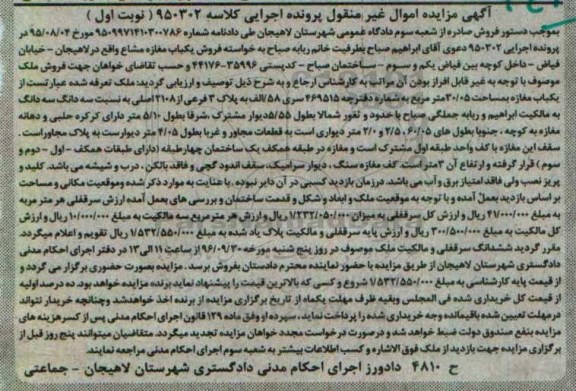 آگهی مزایده اموال غیر منقول پرونده اجرایی کلاسه ۹۵۰۳۰۲ ( نوبت اول )
بموجب دستور فروش صادره از شعبه سوم دادگاه عمومی شهرستان لاهیجان طی دادنامه شماره ۹۵۰۹۹۷۱۴۱۰۳۰۰۷۸۶ مورخ ۹۵/۰۸/۰۴ در
پرونده اجرایی ۹۵۰۳۰۲ دعوی آقای ابراهیم صباح بطرفیت خانم ربابه صباح به خواسته فروش یکباب مغازه مشاع واقع در لاهیجان - خیابان
فیاض - داخل کوچه بین فیاض یکم و سوم - ساختمان صباح - کدپستی ۳۵۹۹۶-۴۴۱۷۶ و حسب تقاضای خواهان جهت فروش ملک
موصوف با توجه به غیر قابل افراز بودن آن مراتب به کارشناسی ارجاع و به شرح ذیل توصیف و ارزیابی گردید: ملک تعرفه شده عبارتست از
یکباب مغازه بمساحت ۳۰/۰۵ متر مربع به شماره دفترچه ۴۶۹۵۱۵ سری ۵۸/الف به پلاک ۳ فرعی از ۲۱۰۸ اصلی به نسبت سه دانگ سه دانگ
به مالکیت ابراهیم و ربابه جملگی صباح با حدود و ثغور شمالا بطول ۵/۵۵ دیوار مشترک ،شرقا بطول ۵/۱۰ متر دارای کرکره حلبی و دهانه
مغازه به کوچه ، جنوبا بطول های ۲/۵،۶۰/۰۵ و ۲/۰ متر دیواری است به قطعات مجاور و غربا بطول ۴/۰۵ متر دیواریست به پلاک مجاوراست .
سقف این مغازه با کف واحد طبقه اول مشترک است و مغازه در طبقه همکف یک ساختمان چهارطبقه (دارای طبقات همکف - اول - دوم و
سوم ) قرار گرفته و ارتفاع آن ۳متر است. کف مغازه سنگ ، دیوار سرامیک، سقف اندود گچی و فاقد بالکن ، درب و شیشه می باشد. کلید و
پریز نصب ولی فاقد امتیاز برق و آب می باشد. درزمان بازدید کسبی در آن دایر نبوده . با عنایت به موارد ذکر شده و موقعیت مکانی و مساحت
بر اساس بازدید بعمل آمده و با توجه به موقعیت ملک و ابعاد و شکل و قدمت ساختمان و بررسی های بعمل آمده ارزش سرقفلی هر متر مربع
به مبلغ ۴۱/۰۰۰/۰۰۰ ریال و ارزش کل سرقفلی به میزان ۱/۲۳۲/۰۵۰/۰۰۰ ریال و ارزش هر متر مربع سه مالکیت به مبلغ ۱۰/۰۰۰/۰۰۰ ریال و ارزش
کل مالکیت به مبلغ ۳۰۰/۵۰۰/۰۰۰ ریال و ارزش پایه سرقفلی و مالکیت پلاک یاد شده به مبلغ ۱/۵۳۲/۵۵۰/۰۰۰ ریال تقویم و اعلام میگردد.
مقرر گردید ششدانگ سرقفلی و مالکیت ملک موصوف در روز پنج شنبه مورخه ۹۶/۰۹/۳۰ از ساعت ۱۱ الی ۱۳ در دفتر اجرای احکام مدنی
دادگستری شهرستان لاهیجان از طریق مزایده با حضور نماینده محترم دادستان بفروش برسد . مزایده بصورت حضوری برگزار می گردد و
از قیمت پایه کارشناسی به مبلغ ۱/۵۳۲/۵۵۰/۰۰۰ شروع و کسی که بالاترین قیمت را پیشنهاد نماید برنده مزایده خواهد بود. ده درصد اولیه
از قیمت کل خریداری شده فی المجلس وبقیه ظرف مهلت یکماه از تاریخ برگزاری مزایده از برنده اخذ خواهدشد وچنانچه خریدار نتواند
در مهلت تعیین شده باقیمانده وجه خریداری شده را پرداخت نماید، سپرده او وفق ماده ۱۲۹ قانون اجرای احکام مدنی پس از کسر هزینه های
مزایده بنفع صندوق دولت ضبط خواهد شد و درصورت درخواست مجدد خواهان مزایده تجدید میگردد. متقاضیان میتوانند پنج روز قبل از
برگزاری مزایده جهت بازدید از ملک فوق الاشاره و کسب اطلاعات بیشتر به شعبه سوم اجرای احکام مدنی مراجعه نمایند.
ح ۴۸۱۰ دادورز اجرای احکام مدنی دادگستری شهرستان لاهیجان - جماعتی